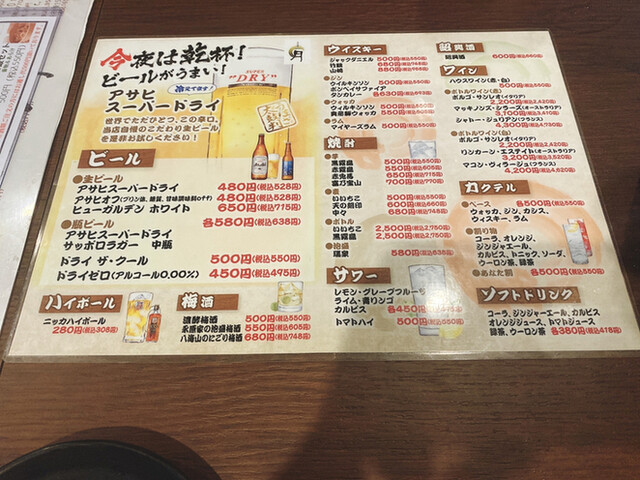 今夜は乾杯!
ビールがうまい!
アサヒ
スーパードライ
世界でただひとつ、この辛口。
当店自慢のこだわり生ビール
を是非お試しください!
SUPER
"DRY"
ビール
●生ビール
アサヒスーパードライ 480円(税込528円)
アサヒオフ(プリン体、糖質、甘味料0ゼロ) 480円(税込528円)
ヒューガルデン ホワイト 650円(税込715円)
●瓶ビール 各580円(税込638円)
アサヒスーパードライ
サッポロラガー 中瓶
ドライ ザ・クール 500円(税込550円)
ドライゼロ(アルコール0.00%) 450円(税込495円)
ハイボール
ニッカハイボール
280円(税込308円)
梅酒
濃醇梅酒 500円(税込550円)
八海山のにごり梅酒 680円(税込748円)
ウイスキー
ジャックダニエル 500円(税込550円)
竹鶴 680円(税込748円)
山崎 880円(税込968円)
●ジン
ウィルキンソン 500円(税込550円)
ボンベイサファイア
タンカレー 各630円(税込693円)
●ウォッカ
ウィルキンソン 500円(税込550円)
●ラム
マイヤーズラム 500円(税込550円)
焼酎
●芋
黒霧島 500円(税込550円)
赤霧島 550円(税込605円)
赤兎馬 650円(税込715円)
富乃宝山 700円(税込770円)
●麦
いいちこ 500円(税込550円)
中々 680円(税込748円)
●ボトル
いいちこ 2,500円(税込2,750円)
黒霧島 2,500円(税込2,750円)
●泡盛
瑞泉 580円(税込638円)
サワー
レモン・グレープフルーツ
ライム・青リンゴ
カルピス 各450円
トマトハイ 500円(税込550円)
紹興酒
紹興酒 600円(税込660円)
ワイン
ハウスワイン(赤・白)
500円(税込550円)
●ボトルワイン(赤)
ボルゴ・サンレオ(イタリア)
2,200円(税込2,420円)
マッキノンズ・シラーズ(オーストラリア)
3,100円(税込3,410円)
シャトー・ジュリアン(フランス)
4,300円(税込4,730円)
●ボトルワイン(白)
ボルゴ・サンレオ(イタリア)
2,200円(税込2,420円)
リンカーン・エステイト(オーストラリア)
3,200円(税込3,520円)
マコン・ヴィラージュ(フランス)
4,200円(税込4,620円)
カクテル
●ベース 各500円(税込550円)
ウォッカ、ジン、カシス、
ウィスキー、ラム
●割り物
コーラ、オレンジ、
ジンジャエール、
カルピス、トニック、ソーダ、
ウーロン茶、緑茶
●あなた割 各500円(税込550円)
ソフトドリンク
コーラ、ジンジャーエール、カルピス
オレンジジュース、トマトジュース
緑茶、ウーロン茶 各380円(税込418円)